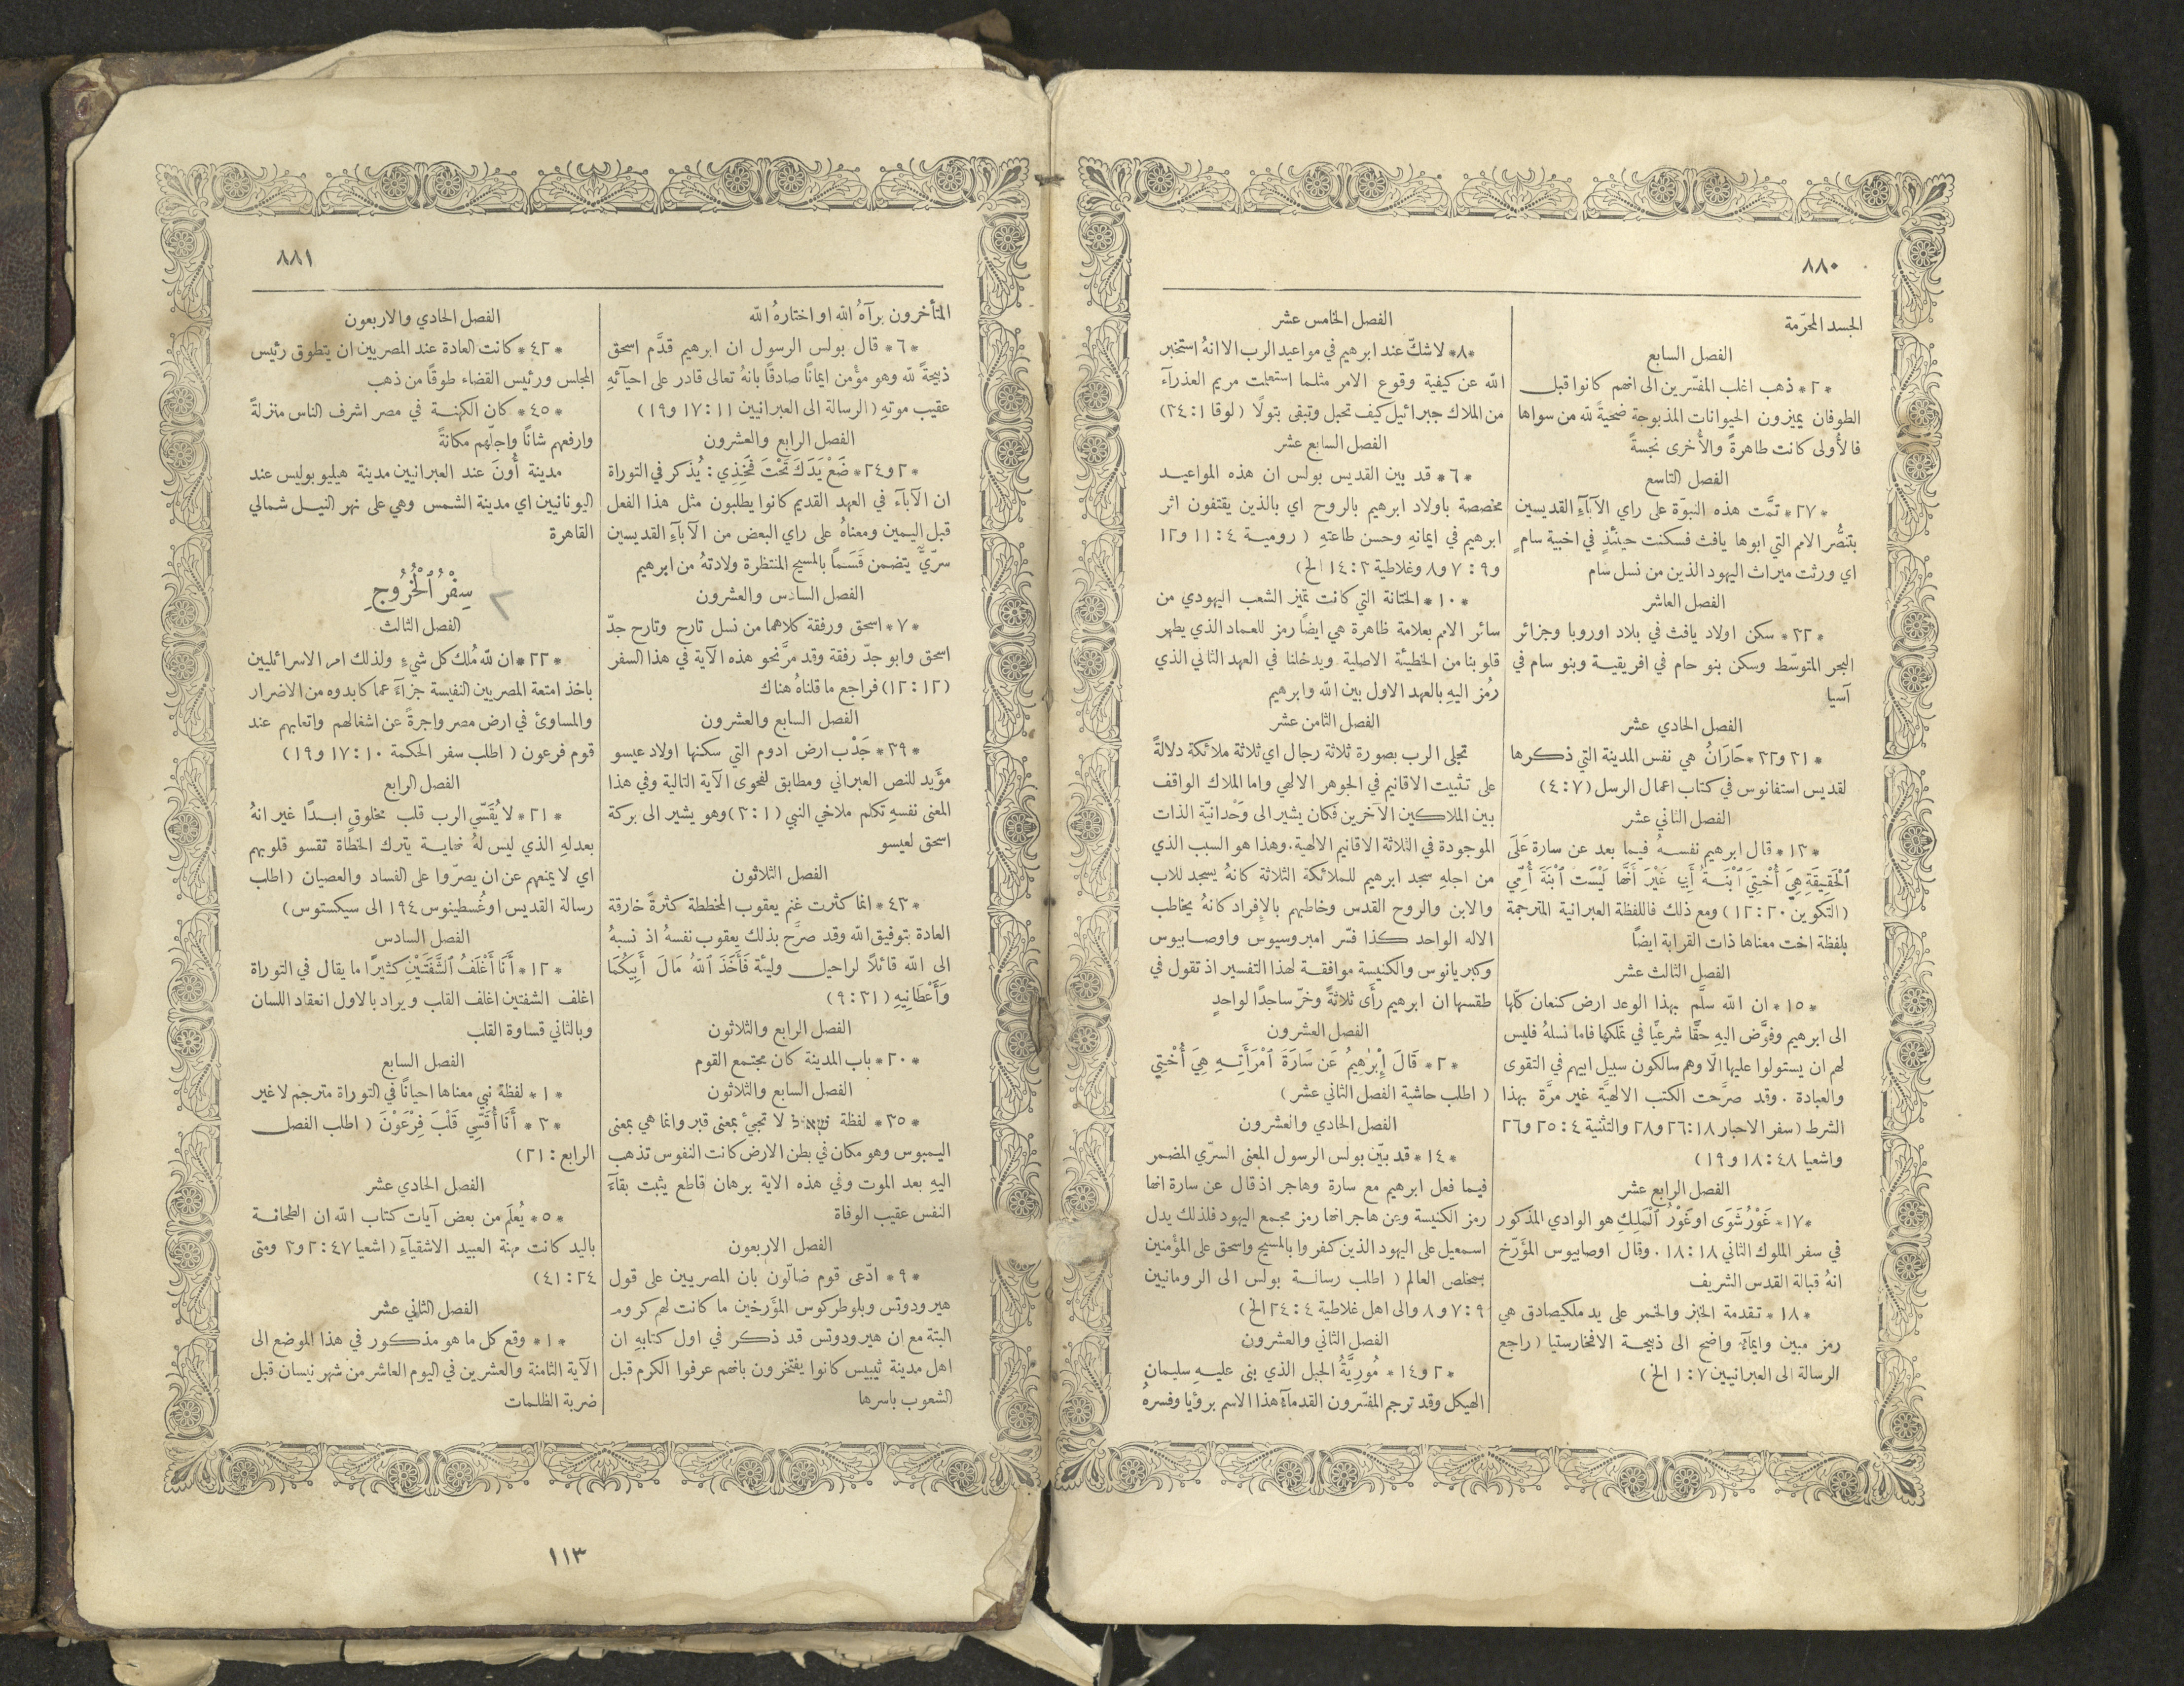 ٨٨٠
الجسد المحرّمة
الفصل السابع
*٢* ذهب اغلب المفسّرين الى انهم كانوا قبل
الطوفان يميزون الحيوانات المذبوحة ضحيةً لله من سواها
فالأُولى كانت طاهرةً والأُخرى نجسةً
الفصل التاسع
*٢٧* تمَّت هذه النبوّة على راي الآبآءِ القديسين
بتنصُّر الامم التي ابوها يافث فسكنت حينئذٍ في اخبية سامٍ
اي ورثت ميراث اليهود الذين من نسل سام
الفصل العاشر
*٢٢* سكن اولاد يافث في بلاد اوروبا وجزائر
البحر المتوسّط وسكن بنو حام في افريقية وبنو سام في
آسيا
الفصل الحادي عشر
*٣١ و٣٢* حَارَانُ هي نفس المدينة التي ذكرها
لقديس استفانوس في كتاب اعمال الرسل (٧: ٤)
الفصل الثاني عشر
*١٣* قال ابرهيم نفسهُ فيما بعد عن سارة عَلَى
ٱلْحَقِيقَةِ هِيَ أُخْتِي ٱبْنَةُ أَبِي غَيْرَ أَنَّهَا لَيْسَت ٱبْنَةَ أُمِّي
(التكوين ٢٠: ١٢) ومع ذلك فاللفظة العبرانية المترجمة
بلفظة اخت معناها ذات القرابة ايضًا
الفصل الثالث عشر
*١٥* ان الله سلَّم بهذا الوعد ارض كنعان كلّها
الى ابرهيم وفوَّض اليهِ حقًّا شرعيًّا في تملكها فاما نسلهُ فليس
لهم ان يستولوا عليها الّا وهم سالكون سبيل ابيهم في التقوى
والعبادة . وقد صرَّحت الكتب الالهيَّة غير مرَّة بهذا
الشرط (سفر الاحبار ١٨: ٢٦ و٢٨ والتثنية ٤: ٢٥ و٢٦
واشعيا ٤٨: ١٨ و١٩)
الفصل الرابع عشر
*١٧* غَوْرُ شَوَى او غَوْرُ ٱلْمَلِكِ هو الوادي المذكور
في سفر الملوك الثاني ١٨: ١٨ . وقال اوصابيوس المؤَرّخ
انهُ قبالة القدس الشريف
*١٨* تقدمة الخبز والخمر على يد ملكيصادق هي
رمز مبين وايمآءٌ واضح الى ذبيحة الافخارستيا (راجع
الرسالة الى العبرانيين ٧: ١ الخ)
الفصل الخامس عشر
*٨* لا شكّ عند ابرهيم في مواعيد الرب الا انهُ استخبر
الله عن كيفية وقوع الامر مثلما استعلمت مريم العذرآء
من الملاك جبرائيل كيف تحبل وتبقى بتولًا (لوقا ١: ٣٤)
الفصل السابع عشر
*٦* قد بين القديس بولس ان هذه المواعيد
مخصصة باولاد ابرهيم بالروح اي بالذين يقتفون اثر
ابرهيم في ايمانهِ وحسن طاعتهِ (رومية ٤: ١١ و١٢
و٩: ٧ و٨ وغلاطية ٣: ١٤ الخ)
*١٠* الختانة التي كانت تميّز الشعب اليهودي من
سائر الامم بعلامة ظاهرة هي ايضًا رمز للعماد الذي يطهر
قلوبنا من الخطيئة الاصلية ويدخلنا في العهد الثاني الذي
رُمز اليهِ بالعهد الاول بين الله وابرهيم
الفصل الثامن عشر
تجلى الرب بصورة ثلاثة رجال اي ثلاثة ملائكة دلالةً
على تثبيت الاقانيم في الجوهر الالهي واما الملاك الواقف
بين الملاكين الآخرين فكان يشير الى وَحْدانيّة الذات
الموجودة في الثلاثة الاقانيم الالهية . وهذا هو السبب الذي
من اجلهِ سجد ابرهيم للملائكة الثلاثة كانهُ يسجد للاب
والابن والروح القدس وخاطبهم بالافراد كانهُ يخاطب
الاله الواحد كذا فسّر امبروسيوس واوصابيوس
وكبريانوس والكنيسة موافقة لهذا التفسير اذ تقول في
طقسها ان ابرهيم رأَى ثلاثةً وخرّ ساجدًا لواحدٍ
الفصل العشرون
*٢* قَالَ إِبْرٰهِيمُ عَن سَارَةَ ٱمْرَأَتِهِ هِيَ أُخْتِي
(اطلب حاشية الفصل الثاني عشر)
الفصل الحادي والعشرون
*١٤* قد بيّن بولس الرسول المعنى السرّي المضمر
فيما فعل ابرهيم مع سارة وهاجر اذ قال عن سارة انها
رمز الكنيسة وعن هاجر انها رمز مجمع اليهود فلذلك يدل
اسمعيل على اليهود الذين كفروا بالمسيح واسحق على المؤْمنين
بمخلص العالم (اطلب رسالة بولس الى الرومانيين
٩: ٧ و٨ والى اهل غلاطية ٤: ٢٤ الخ)
الفصل الثاني والعشرون
*٢ و١٤* مُورِيَّةُ الجبل الذي بنى عليهِ سليمان
الهيكل وقد ترجم المفسّرون القدمآءُ هذا الاسم برؤيا وفسرهُ
٨٨١
المتأخرون برآهُ الله او اختارهُ الله
*٦* قال بولس الرسول ان ابرهيم قدَّم اسحق
ذبيحةً لله وهو مؤْمن ايمانًا صادقًا بانهُ تعالى قادر على احيآئهِ
عقيب موتهِ (الرسالة الى العبرانيين ١١: ١٧ و١٩)
الفصل الرابع والعشرون
*٢ و٢٤* ضَعْ يَدَكَ تَحْتَ فَخِذِي: يُذكر في التوراة
ان الآبآءَ في العهد القديم كانوا يطلبون مثل هذا الفعل
قبل اليمين ومعناهُ على راي البعض من الآبآءِ القديسين
سرّيٌّ يتضمن قَسَمًا بالمسيح المنتظرة ولادتهُ من ابرهيم
الفصل السادس والعشرون
*٧* اسحق ورفقة كلاهما من نسل تارح وتارح جدّ
اسحق وابو جدّ رفقة وقد مرَّ نحو هذه الآية في هذا السفر
(١٢: ١٣) فراجع ما قلناهُ هناك
الفصل السابع والعشرون
*٣٩* جَدْب ارض ادوم التي سكنها اولاد عيسو
مؤَيد للنص العبراني ومطابق لفحوى الآية التالية وفي هذا
المعنى نفسهِ تكلم ملاخي النبي (١: ٣) وهو يشير الى بركة
اسحق لعيسو
الفصل الثلاثون
*٤٣* انما كثرت غنم يعقوب المخططة كثرةً خارقة
العادة بتوفيق الله وقد صرَّح بذلك يعقوب نفسهُ اذ نسبهُ
الى الله قائلًا لراحيل وليئة فَأَخَذَ ٱللهُ مَالَ أَبِيكُمَا
وَأَعْطَانِيهِ (٣١: ٩)
الفصل الرابع والثلاثون
*٢٠* باب المدينة كان مجتمع القوم
الفصل السابع والثلاثون
*٣٥* لفظة שאול لا تجيءُ بمعنى قبر وانما هي بمعنى
اليمبوس وهو مكان في بطن الارض كانت النفوس تذهب
اليهِ بعد الموت وفي هذه الاية برهان قاطع يثبت بقآءَ
النفس عقيب الوفاة
الفصل الاربعون
*٩* ادّعى قوم ضالّون بان المصريين على قول
هيرودوتس وبلوطركوس المؤَرخين ما كانت لهم كروم
البتة مع ان هيرودوتس قد ذكر في اول كتابهِ ان
اهل مدينة ثيبيس كانوا يفتخرون بانهم عرفوا الكرم قبل
الشعوب باسرها
الفصل الحادي والاربعون
*٤٢* كانت العادة عند المصريين ان يتطوق رئيس
المجلس ورئيس القضاء طوقًا من ذهب
*٤٥* كان الكهنة في مصر اشرف الناس منزلةً
وارفعهم شانًا واجلّهم مكانةً
مدينة أُونَ عند العبرانيين مدينة هيليو بوليس عند
اليونانيين اي مدينة الشمس وهي على نهر النيل شمالي
القاهرة
سِفْرُ ٱلْخُرُوجِ
الفصل الثالث
*٢٢* ان لله مُلك كل شيءٍ ولذلك امر الاسرائليين
باخذ امتعة المصريين النفيسة جزآءَ عما كابدوه من الاضرار
والمساوئ في ارض مصر واجرةً عن اشغالهم واتعابهم عند
قوم فرعون (اطلب سفر الحكمة ١٠: ١٧ و١٩)
الفصل الرابع
*٢١* لا يُقَسِّي الرب قلب مخلوقٍ ابدًا غير انهُ
بعدلهِ الذي ليس لهُ نهاية يترك الخطاة تقسو قلوبهم
اي لا يمنعهم عن ان يصرّوا على الفساد والعصيان (اطلب
رسالة القديس اوغُسطينوس ١٩٤ الى سيكستوس)
الفصل السادس
*١٢* أَنَا أَغْلَفُ ٱلشَّفَتَيْنِ كثيرًا ما يقال في التوراة
اغلف الشفتين اغلف القلب ويراد بالاول انعقاد اللسان
وبالثاني قساوة القلب
الفصل السابع
*١* لفظة نبي معناها احيانًا في التوراة مترجم لا غير
*٣* أَنَا أُقَسِّي قَلْبَ فِرْعَوْنَ (اطلب الفصل
الرابع: ٢١)
الفصل الحادي عشر
*٥* يُعلَم من بعض آيات كتاب الله ان الطحانة
باليد كانت مهنة العبيد الاشقيآءِ (اشعيا ٤٧: ٢ و٣ ومتى
٢٤: ٤١)
الفصل الثاني عشر
*١* وقع كل ما هو مذكور في هذا الموضع الى
الآية الثامنة والعشرين في اليوم العاشر من شهر نيسان قبل
ضربة الظلمات
١١٣